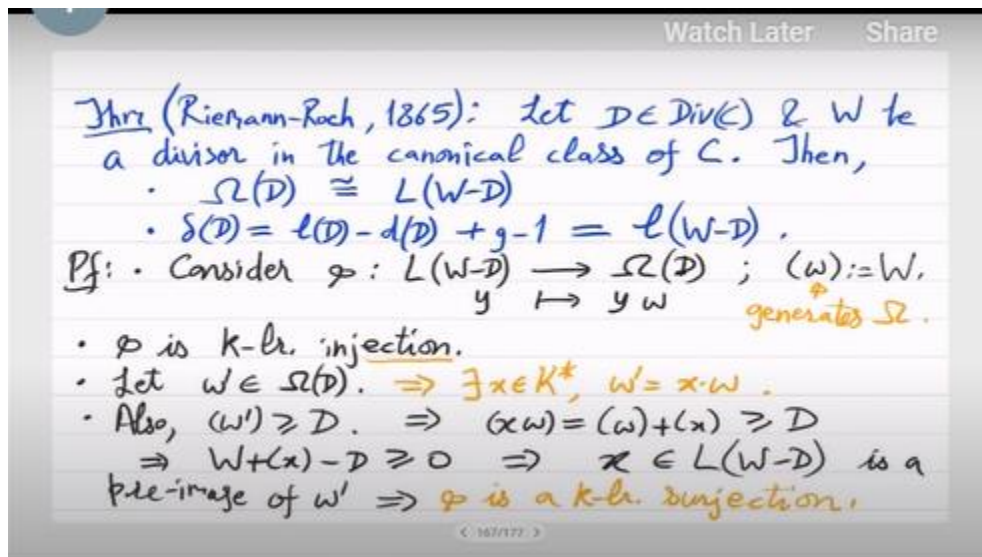 Watch Later Share
Thm (Riemann-Roch, 1865): Let D∈Div(C) & W be
a divisor in the canonical class of C. Then,
· Ω(D) ≅ L(W-D)
· δ(D) = l(D) - d(D) + g-1 = l(W-D).
Pf: · Consider φ: L(W-D) ⟶ Ω(D) ; (ω):=W.
y ↦ yω generates Ω.
· φ is k-lr. injection.
· Let ω'∈ Ω(D). ⇒ ∃x∈K*, ω'= x·ω.
· Also, (ω') ≥ D. ⇒ (xω) = (ω)+(x) ≥ D
⇒ W+(x)-D ≥ 0 ⇒ x ∈ L(W-D) is a
pre-image of ω' ⇒ φ is a k-lr. surjection.
< 167/177 >